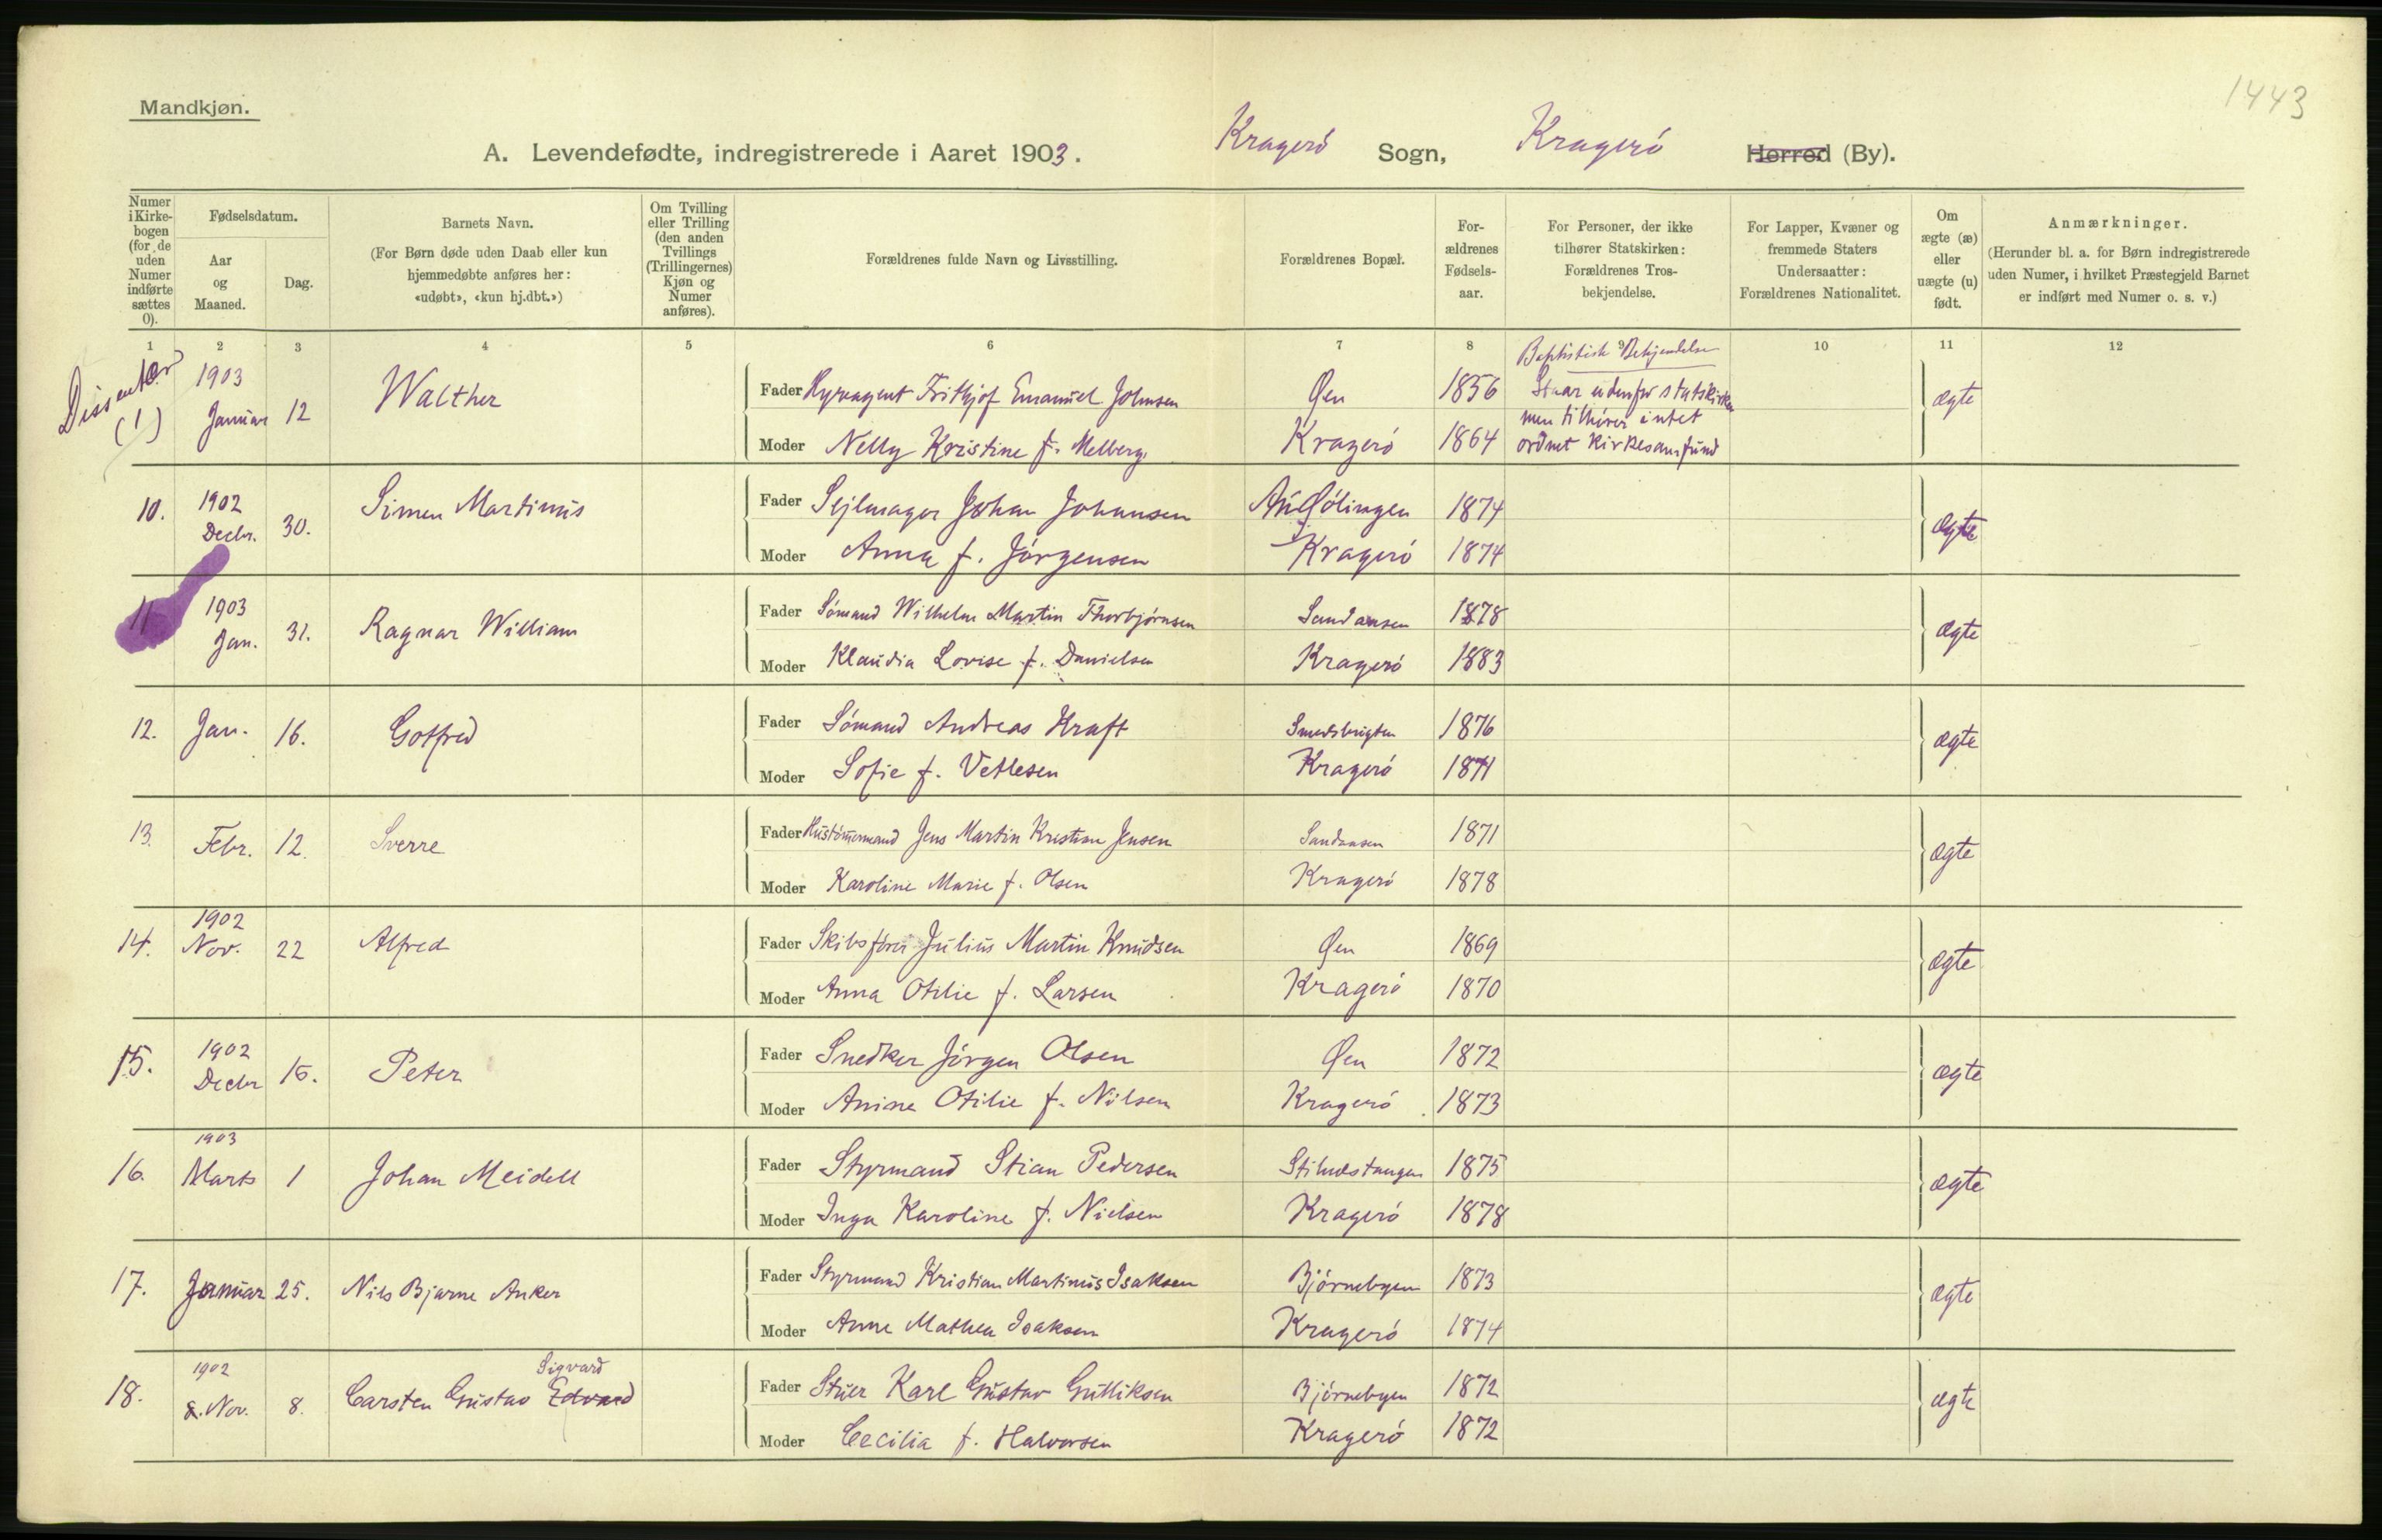 1443
Mandkjøn.
A. Levendefødte, indregistrerede i Aaret 1903. Kragerö Sogn, Kragerö Herred (By).
Numer i Kirkebogen (for de uden Numer indførte sættes 0).
Fødselsdatum.
Aar og Maaned.
Dag.
Barnets Navn.
(For Børn døde uden Daab eller kun hjemmedøbte anføres her: «udøbt», «kun hj.dbt.»)
Om Tvilling eller Trilling (den anden Tvillings (Trillingernes) Kjøn og Numer anføres).
Forældrenes fulde Navn og Livsstilling.
Forældrenes Bopæl.
Forældrenes Fødselsaar.
For Personer, der ikke tilhører Statskirken: Forældrenes Trosbekjendelse.
For Lapper, Kvæner og fremmede Staters Undersaatter: Forældrenes Nationalitet.
Om ægte (æ) eller uægte (u) født.
Anmærkninger.
(Herunder bl. a. for Børn indregistrerede uden Numer, i hvilket Præstegjeld Barnet er indført med Numer o. s. v.)
1 2 3 4 5 6 7 8 9 10 11 12
Dissenter (1) 1903 Januar 12 Walther
Fader Hyreagent Frithjof Emanuel Johnsen Øen 1856 Baptistisk Bekjendelse
Staar udenfor statskirken
men tilhører intet
Moder Nelly Kristine f. Melberg Kragerö 1864 ordnet kirkesamfund ægte
10. 1902 Decbr. 30. Simen Martinus
Fader Sejlmager Johan Johansen 1874
Moder Anna f. Jörgensen Kragerö 1874 ægte
11 1903 Jan. 31. Ragnar William
Fader Sömand Wilhelm Martin Thorbjörnsen Sandaasen 1878
Moder Klaudia Lovise f. Danielsen Kragerö 1883 ægte
12. Jan. 16. Gotfred
Fader Sömand Andreas Kraft Smedsbugten 1876
Moder Sofie f. Vetlesen Kragerö 1871 ægte
13. Febr. 12. Sverre
Fader Hustömermand Jens Martin Kristian Jensen Sandaasen 1871
Moder Karoline Marie f. Olsen Kragerö 1878 ægte
14. 1902 Nov. 22 Alfred
Fader Skibsförer Julius Martin Knudsen Øen 1869
Moder Anna Otilie f. Larsen Kragerö 1870 ægte
15. 1902 Decbr 15. Peter
Fader Snedker Jörgen Olsen Øen 1872
Moder Anine Otilie f. Nilsen Kragerö 1873 ægte
16. 1903 Marts 1 Johan Meidell
Fader Styrmand Stian Pedersen Stilnæstangen 1875
Moder Inga Karoline f. Nielsen Kragerö 1878 ægte
17. Januar 25. Nils Bjarne Anker
Fader Styrmand Kristian Martinus Isaksen Björnebyen 1873
Moder Anne Mathea Isaksen Kragerö 1874 ægte
18. 1902 8. Nov. 8. Carsten Gustav Edvard Sigvard
Fader Stuer Karl Gustav Gulliksen Björnebyen 1872
Moder Cecilia f. Halvorsen Kragerö 1872 ægte